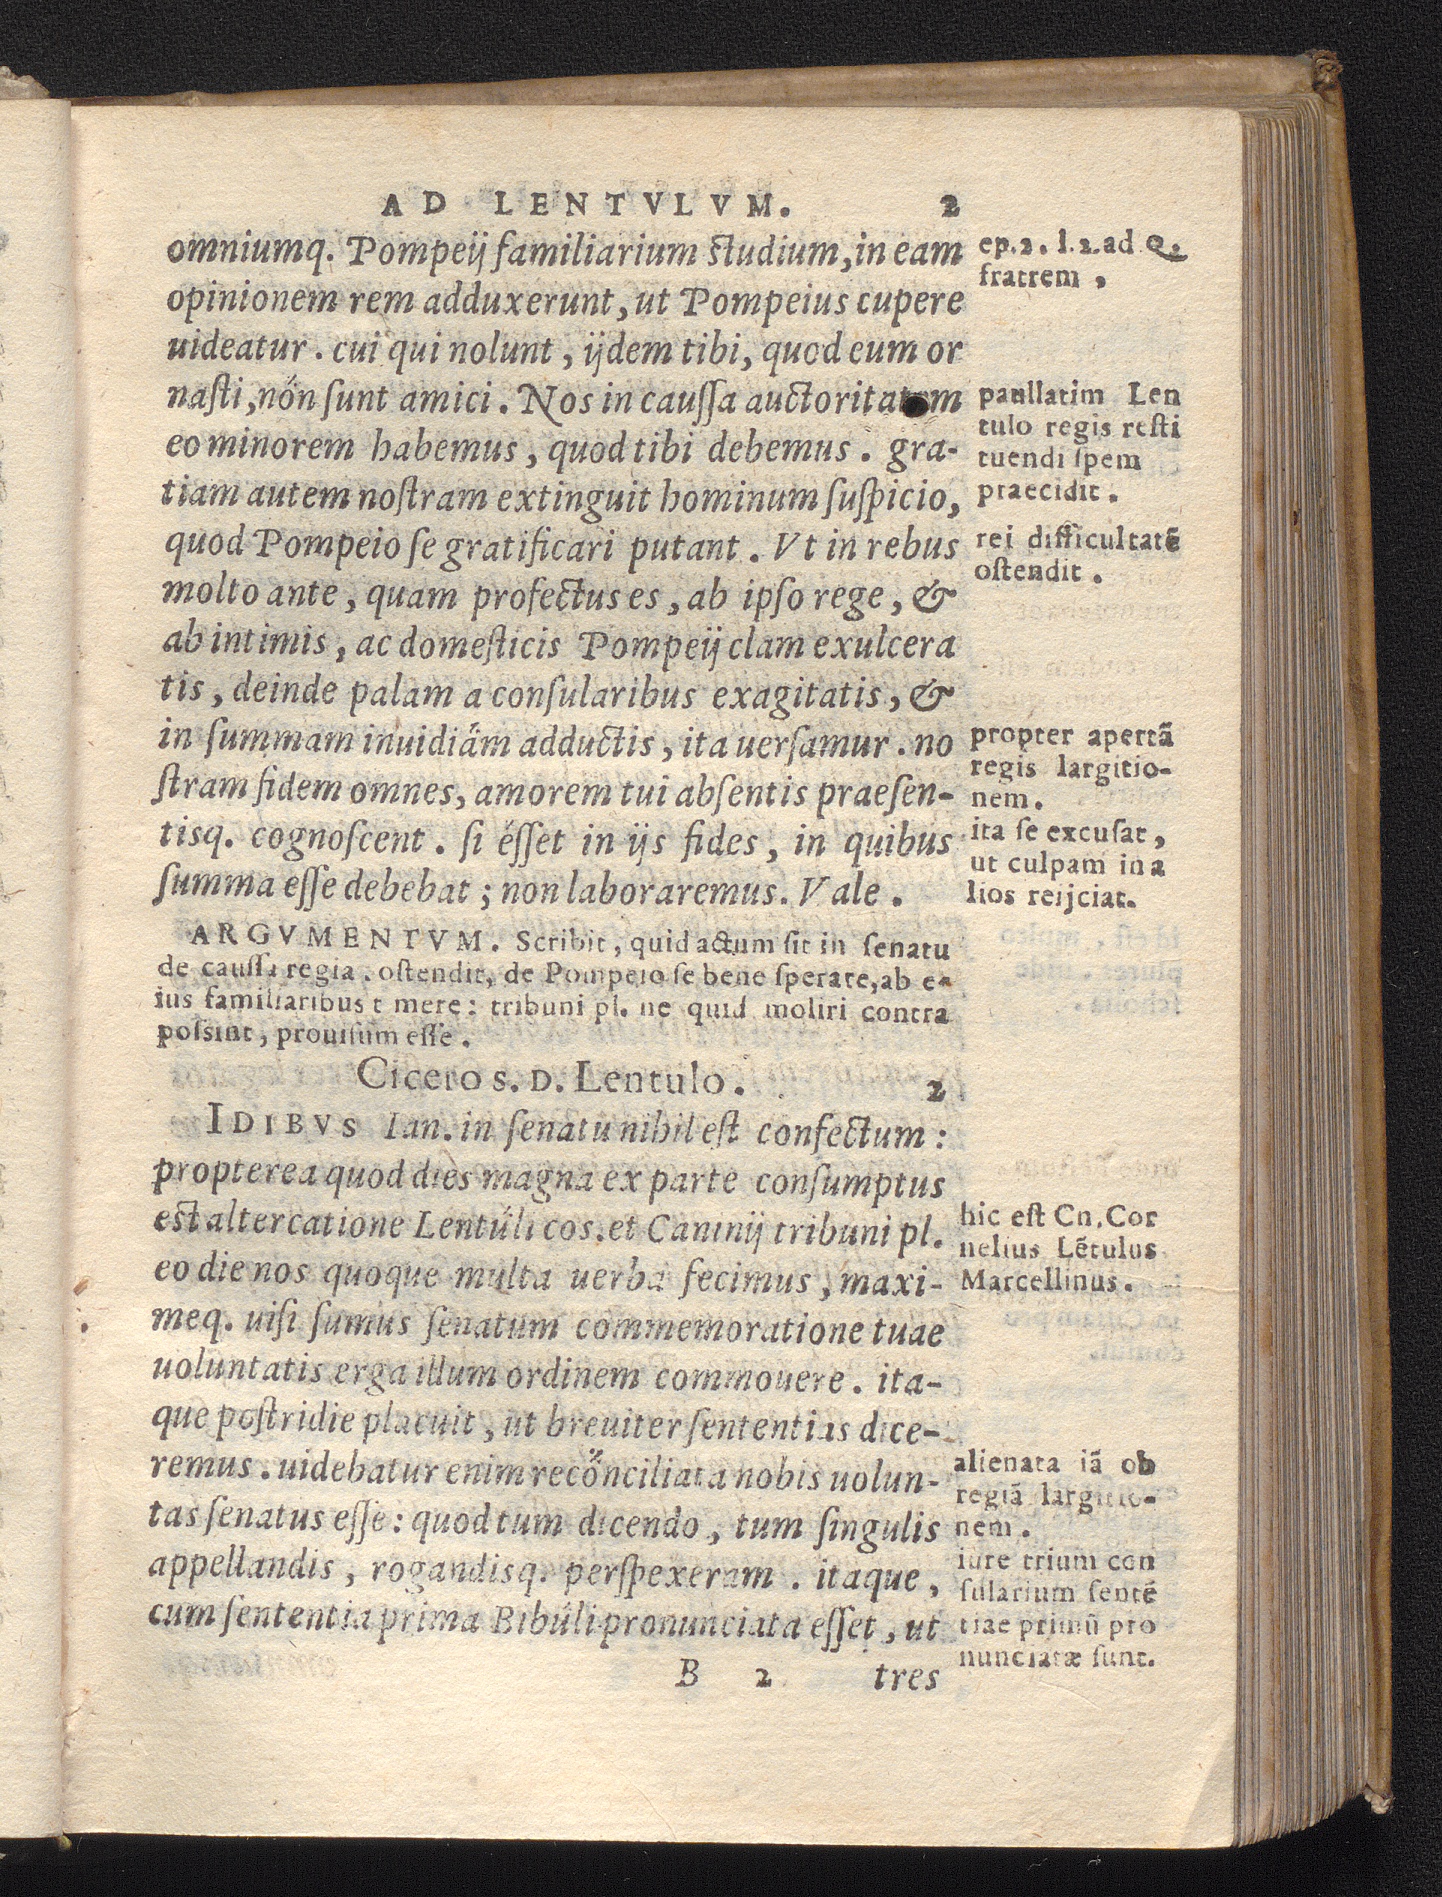 AD LENTVLVM. 2
omniumq. Pompeij familiarium studium, in eam
opinionem rem adduxerunt, ut Pompeius cupere
uideatur. cui qui nolunt, ijdem tibi, quod eum or
nasti, non sunt amici. Nos in caussa auctoritatem
eo minorem habemus, quod tibi debemus. gra-
tiam autem nostram extinguit hominum suspicio,
quod Pompeio se gratificari putant. Vt in rebus
molto ante, quam profectus es, ab ipso rege, &
ab intimis, ac domesticis Pompeij clam exulcera
tis, deinde palam a consularibus exagitatis, &
in summam inuidiam adductis, ita uersamur. no
stram fidem omnes, amorem tui absentis praesen-
tisq. cognoscent. si esset in ijs fides, in quibus
summa esse debebat; non laboraremus. Vale.
ep.2. l.2. ad Q.
fratrem,
paullatim Len
tulo regis resti
tuendi spem
praecidit.
rei difficultatē
ostendit.
propter apertā
regis largitio-
nem.
ita se excusat,
ut culpam in a
lios reijciat.
ARGVMENTVM. Scribit, quid actum sit in senatu
de caussa regia. ostendit, de Pompeio se bene sperare, ab e-
ius familiaribus t mere: tribuni pl. ne quid moliri contra
possint, prouisum esse.
Cicero s. D. Lentulo. 2
IDIBVS Ian. in senatu nihil est confectum:
propterea quod dies magna ex parte consumptus
est altercatione Lentuli cos. et Caninij tribuni pl.
eo die nos quoque multa uerba fecimus, maxi-
meq. uisi sumus senatum commemoratione tuae
uoluntatis erga illum ordinem commouere. ita-
que postridie placuit, ut breuiter sententias dice-
remus. uidebatur enim reconciliata nobis uolun-
tas senatus esse: quod tum dicendo, tum singulis
appellandis, rogandisq. perspexeram. itaque,
cum sententia prima Bibuli pronunciata esset, ut
hic est Cn. Cor
nelius Lētulus
Marcellinus.
alienata iā ob
regiā largitio-
nem.
iure trium con
sularium sentē
tiae primū pro
nunciatæ sunt.
B 2 tres